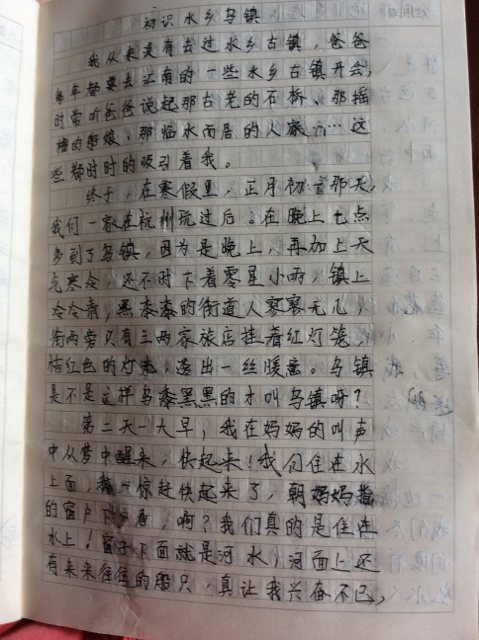 初识水乡乌镇
我从来没有去过水乡古镇，爸爸
每年都要去江南的一些水乡古镇开会，
时常听爸爸说起那古老的石桥、那摇
橹的船娘、那临水而居的人家……这
些都时时的吸引着我。
终于，在寒假里，正月初三那天，
我们一家在杭州玩过后。在晚上七点
多到了乌镇，因为是晚上，再加上天
气寒冷，还不时下着零星小雨，镇上
冷冷清，黑漆漆的街道人寥寥无几，
街两旁只有三两家旅店挂着红灯笼，
桔红色的灯光，透出一丝暖意。乌镇
是不是这样乌漆黑黑的才叫乌镇呀？
第二天一大早，我在妈妈的叫声
中从梦中醒来，快起来！我们住在水
上面，我一惊赶快起来了，朝妈妈指
的窗户下看，啊？我们真的是住在
水上！窗子下面就是河水，河面上还
有来来往往的船只，真让我兴奋不已，